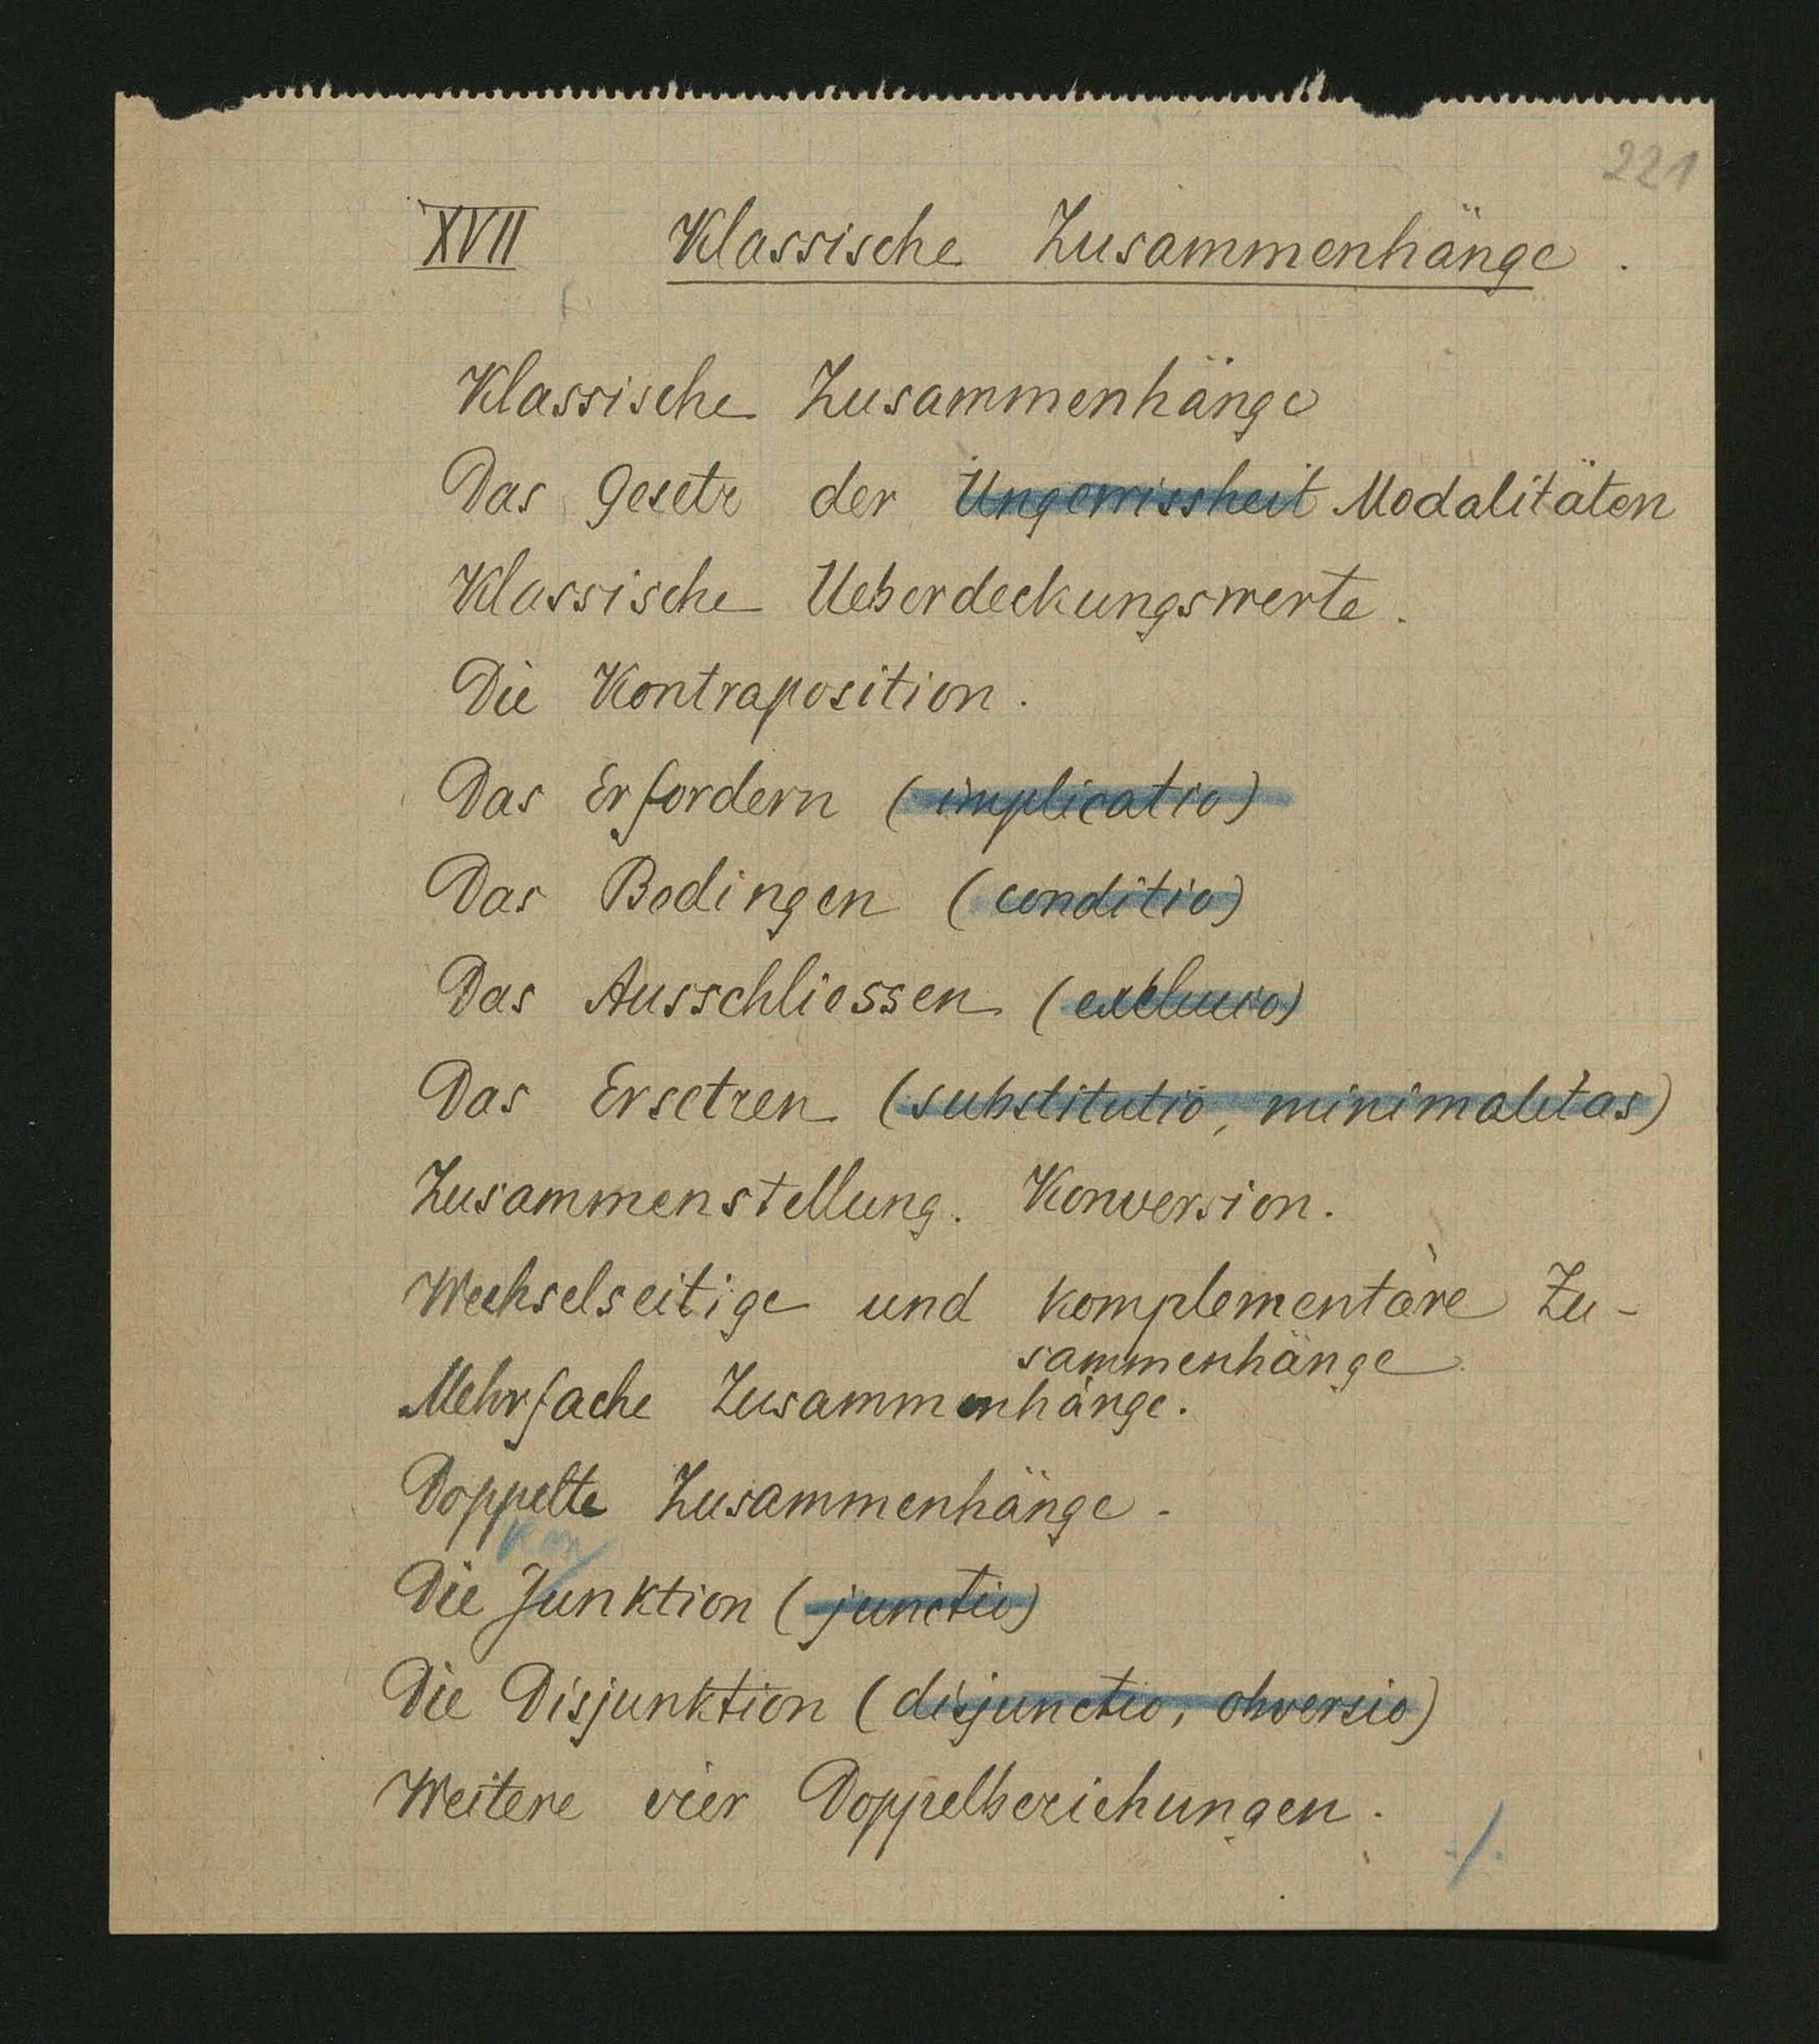 221
XVII Klassische Zusammenhänge.
Klassische Zusammenhänge
Das Gesetz der Ungewissheit Modalitäten
Klassische Ueberdeckungswerte.
Die Kontraposition.
Das Erfordern (implicatio)
Das Bedingen (conditio)
Das Ausschliessen (exclusio)
Das Ersetzen (substitutio, minimalitas)
Zusammenstellung. Konversion.
Wechselseitige und komplementäre Zu-
sammenhänge.
Mehrfache Zusammenhänge.
Doppelte Zusammenhänge.
Kon
Die Junktion (junctio)
Die Disjunktion (disjunctio, obversio)
Weitere vier Doppelbeziehungen.
./.